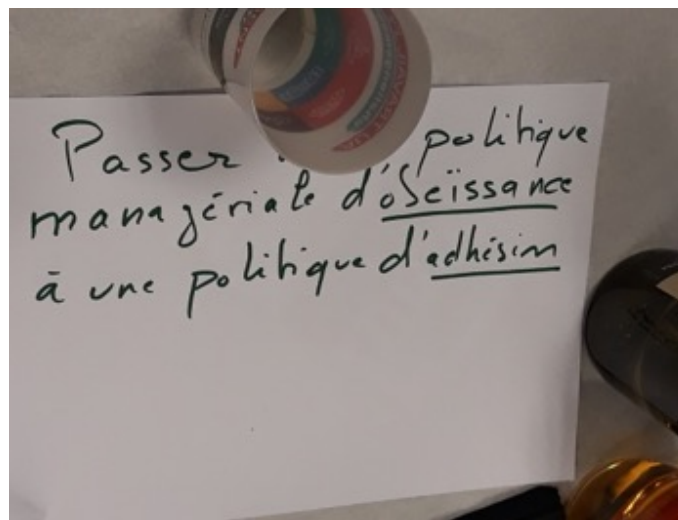 Passer politique
managériale d'obéissance
à une politique d'adhésion